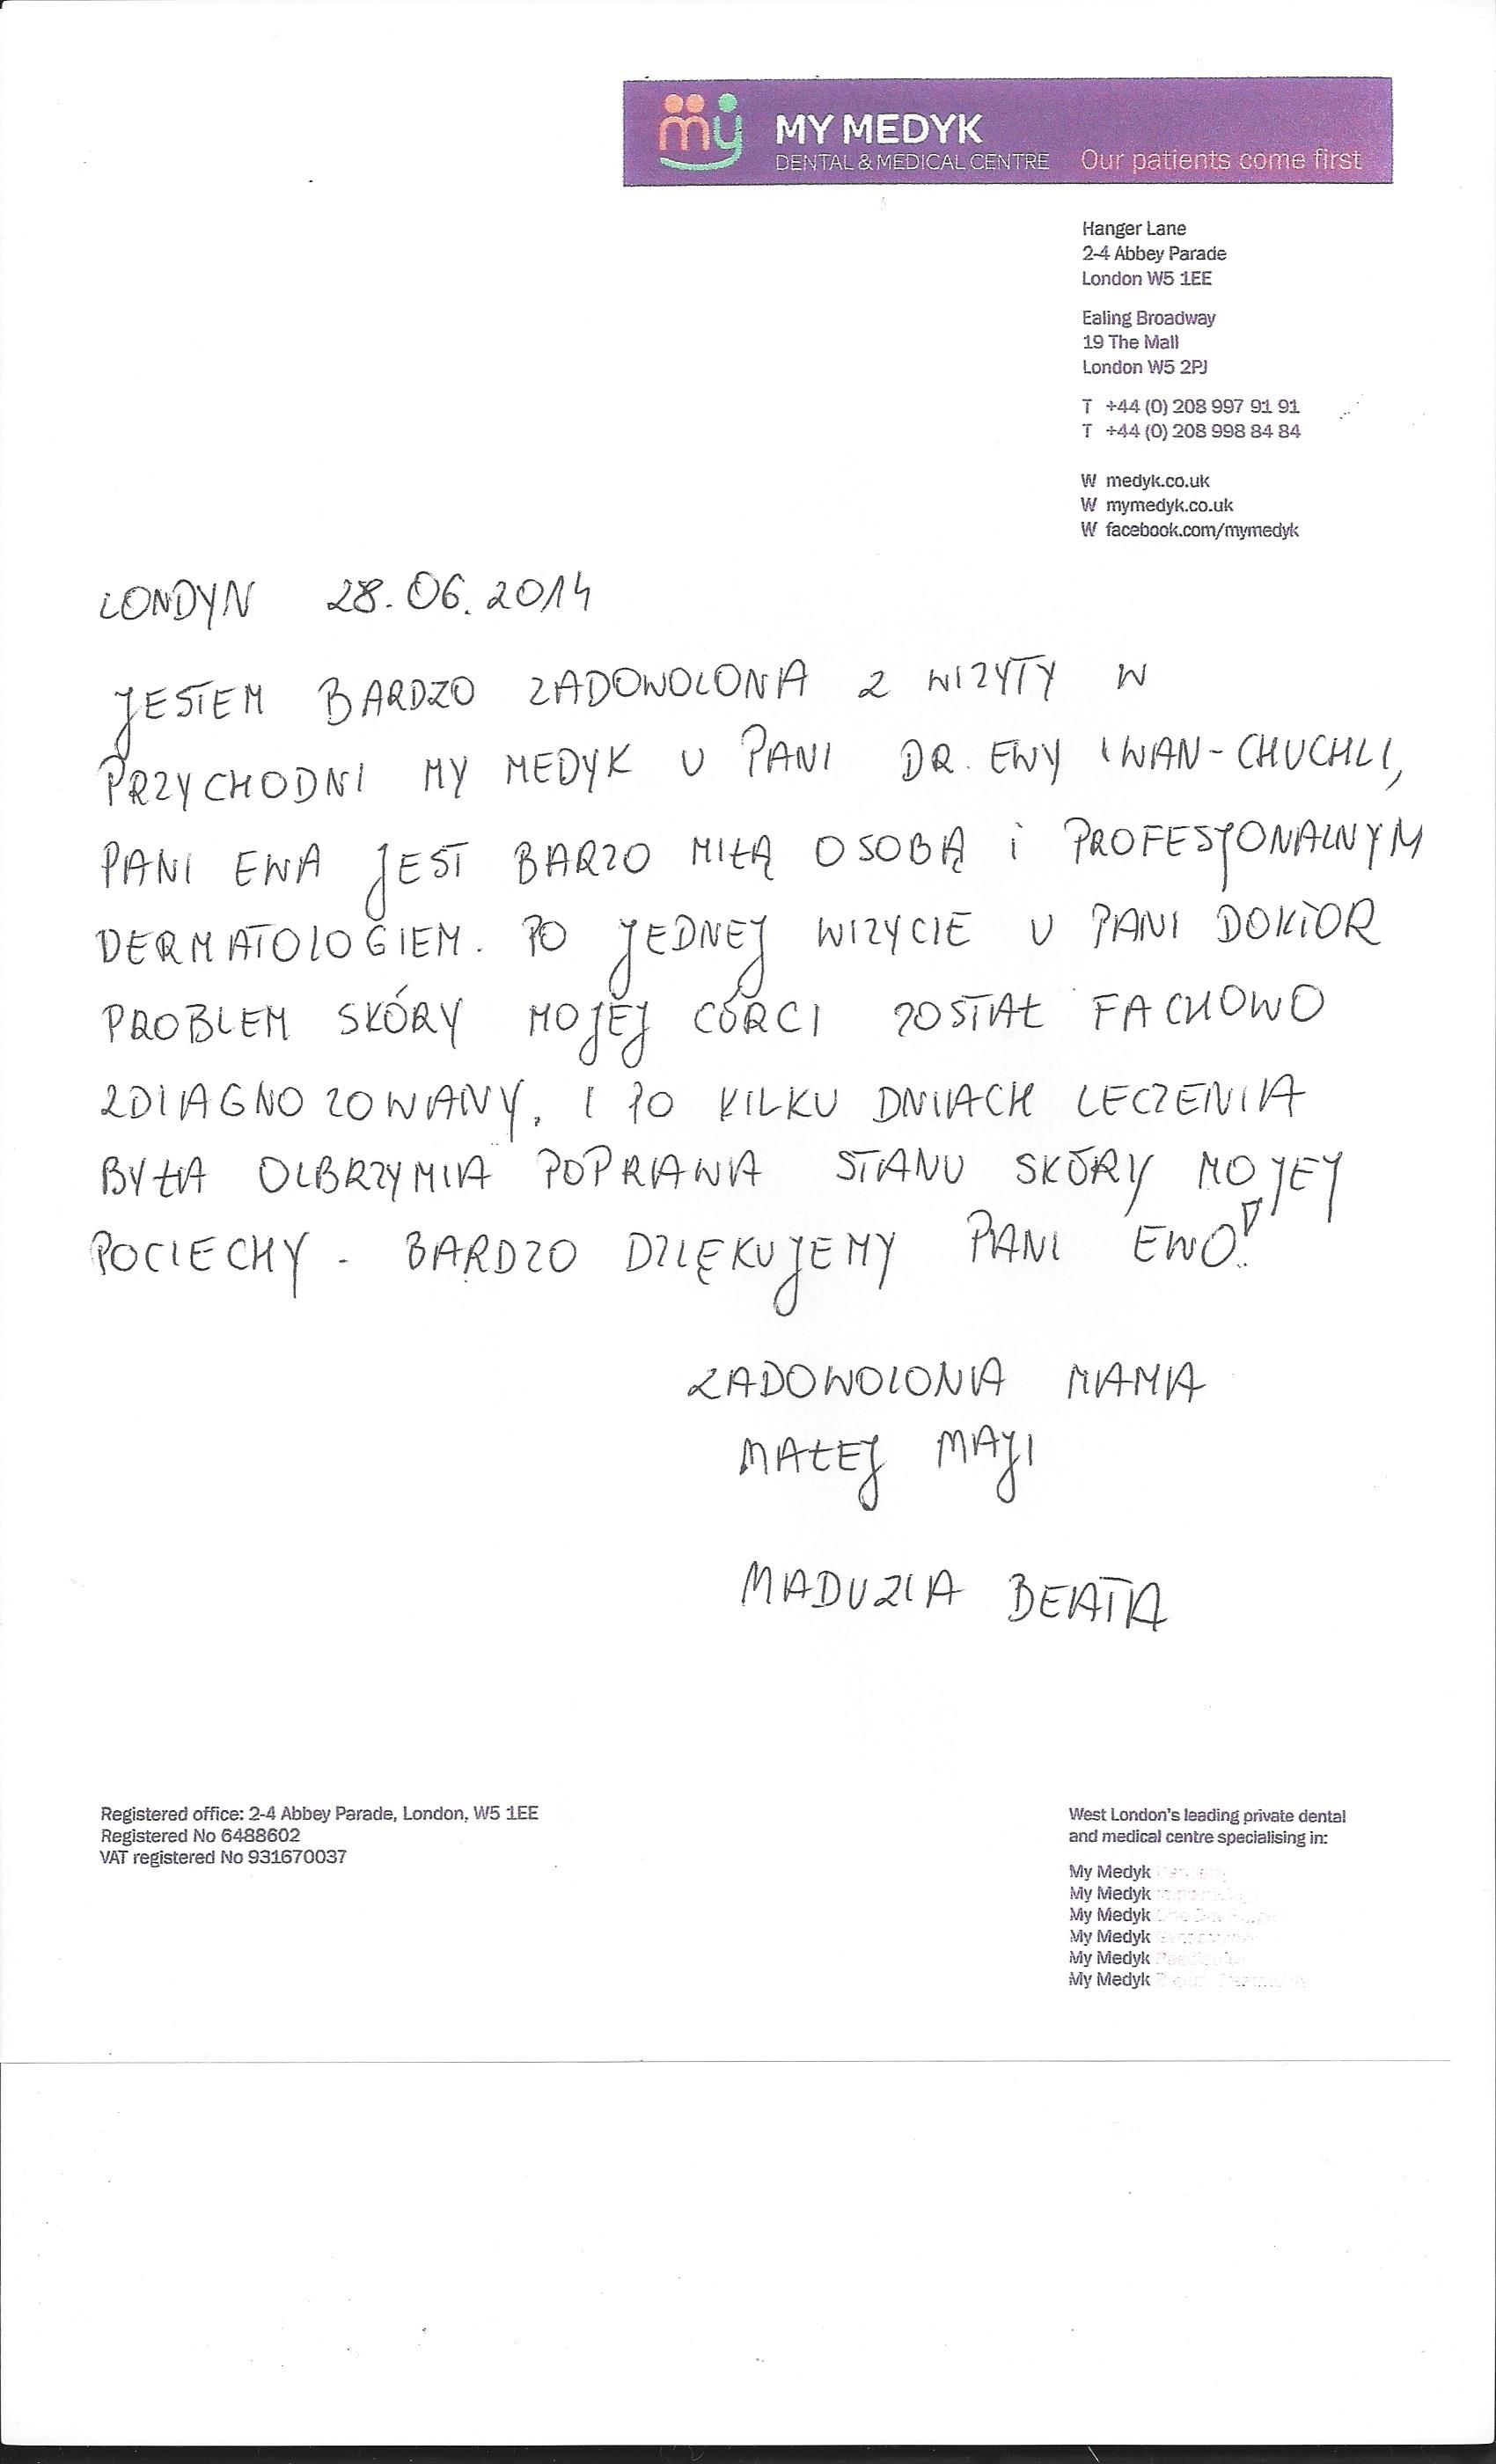 my MY MEDYK
DENTAL & MEDICAL CENTRE Our patients come first
Hanger Lane
2-4 Abbey Parade
London W5 1EE
Ealing Broadway
19 The Mall
London W5 2PJ
T +44 (0) 208 997 91 91
T +44 (0) 208 998 84 84
W medyk.co.uk
W mymedyk.co.uk
W facebook.com/mymedyk
LONDYN 28.06.2014
JESTEM BARDZO ZADOWOLONA Z WIZYTY W
PRZYCHODNI MY MEDYK U PANI DR. EWY IWAN-CHUCHLI,
PANI EWA JEST BARZO MIŁĄ OSOBĄ i PROFESJONALNYM
DERMATOLOGIEM. PO JEDNEJ WIZYCIE U PANI DOKTOR
PROBLEM SKÓRY MOJEJ CÓRCI ZOSTAŁ FACHOWO
ZDIAGNOZOWANY, I PO KILKU DNIACH LECZENIA
BYŁA OLBRZYMIA POPRAWA STANU SKÓRY MOJEJ
POCIECHY - BARDZO DZIĘKUJEMY PANI EWO!
ZADOWOLONA MAMA
MAŁEJ MAJI
MADUZIA BEATA
Registered office: 2-4 Abbey Parade, London, W5 1EE
Registered No 6488602
VAT registered No 931670037
West London's leading private dental
and medical centre specialising in:
My Medyk
My Medyk
My Medyk
My Medyk
My Medyk
My Medyk